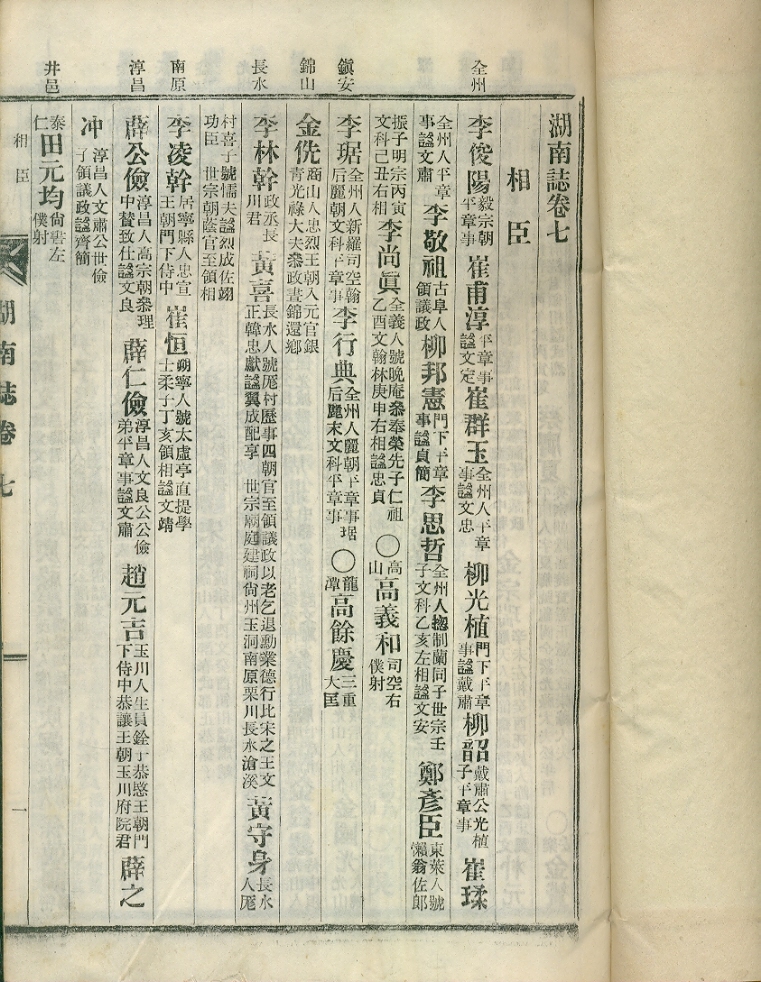 湖南誌卷七
相臣
全州
李俊陽毅宗朝平章事崔甫淳平章事謚文定崔群玉全州人平章事謚文忠柳光植門下平章事謚戴肅柳韶戴肅公光植子平章事崔瑈
全州人平章事謚文肅李敬祖古阜人領議政柳邦憲門下平章事謚貞簡李思哲全州人揔制蘭同子世宗壬子文科乙亥左相謚文安鄭彥臣東萊人號懶翁佐郎
振子明宗丙寅文科己丑右相李尚眞全義人號晚庵叅奉榮先子仁祖乙酉文翰林庚申右相謚忠貞〇高山高義和司空右僕射
鎭安
李琚全州人新羅司空翰后麗朝文科平章事李行典全州人麗朝平章事琚后麗末文科平章事〇龍潭高餘慶三重大匡
錦山
金侁商山人忠烈王朝入元官銀靑光祿大夫叅政晝錦還鄉
長水
李林幹政丞長川君黃喜長水人號厖村歷事四朝官至領議政以老乞退勳業德行比宋之王文正韓忠獻謚翼成配享世宗廟庭建祠尙州玉洞南原栗川長水滄溪黃守身長水人厖
村喜子號懦夫謚烈成佐翊功臣世宗朝蔭官至領相
南原
李凌幹居寧縣人忠宣王朝門下侍中崔恒朔寧人號太虛亭直提學士柔子丁亥領相謚文靖
淳昌
薛公儉淳昌人高宗朝叅理中贊致仕謚文良薛仁儉淳昌人文良公公儉弟平章事謚文肅趙元吉玉川人生員銓子恭愍王朝門下侍中恭讓王朝玉川府院君薛之
冲淳昌人文肅公世儉子領議政謚齊簡
井邑
泰仁田元均尙書左僕射
相臣
湖南誌卷七
一